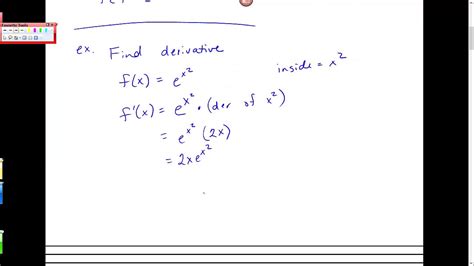 ex. Find derivative
f(x) = e^{x^2}
inside = x^2
f'(x) = e^{x^2} • (der of x^2)
= e^{x^2} (2x)
= 2xe^{x^2}